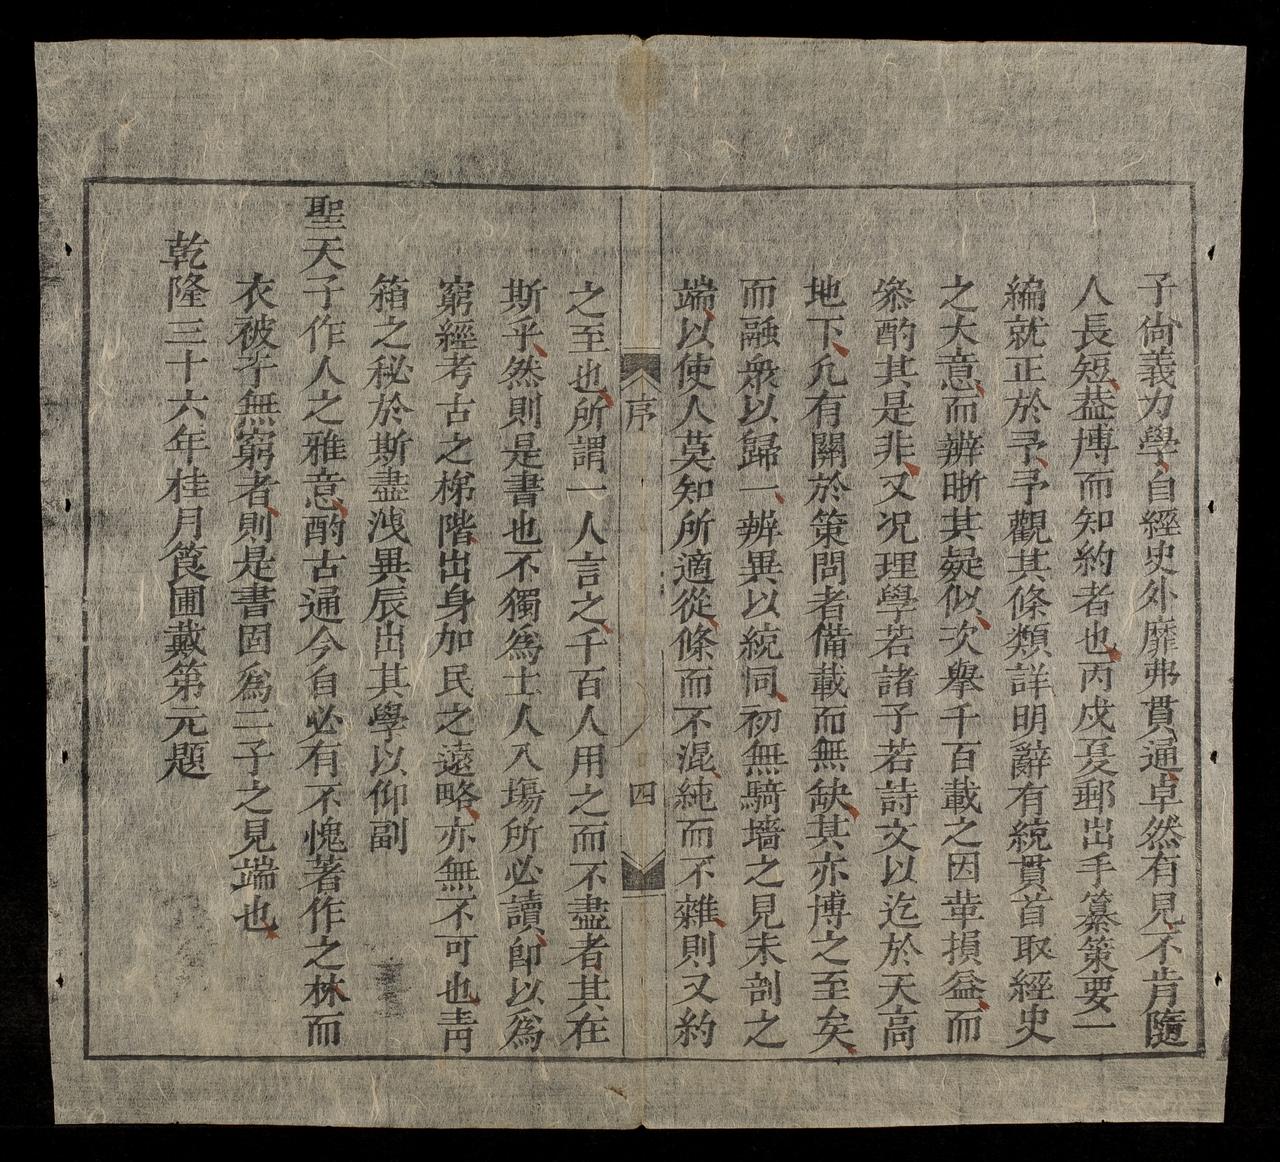 子尙義力學自經史外靡弗貫通卓然有見不肯隨
人長短葢博而知約者也丙戍夏郵出手纂策要一
編就正於予予觀其條類詳明辭有統貫首取經史
之大意而辨晰其疑似次舉千百載之因革損益而
叅酌其是非又况理學若諸子若詩文以迄於天高
地下凢有關於策問者備載而無缺其亦博之至矣
而融衆以歸一辨異以統同初無騎墻之見未剖之
端以使人莫知所適從條而不混純而不雜則又約
序
四
之至也所謂一人言之千百人用之而不盡者其在
斯乎然則是書也不獨爲士人入塲所必讀卽以爲
窮經考古之梯階出身加民之遠略亦無不可也靑
箱之秘於斯盡洩異辰出其學以仰副
聖天子作人之雅意酌古通今自必有不愧著作之林而
衣被乎無窮者則是書固爲二子之見端也
乾隆三十六年桂月篔圃戴第元題